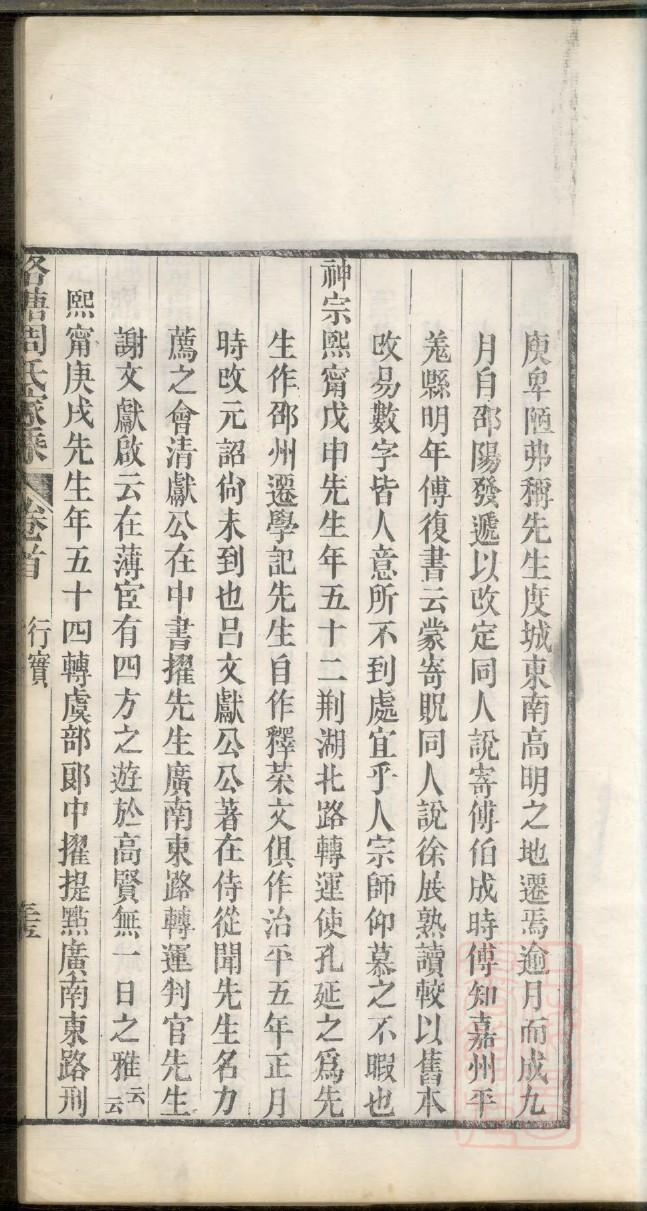 庾卑陋弗稱先生度城東南高明之地遷焉逾月而成九
月自邵陽發遞以改定同人說寄傅伯成時傅知嘉州平
羗縣明年傅復書云蒙寄貺同人說徐展熟讀較以舊本
改易數字皆人意所不到處宜乎人宗師仰慕之不暇也
神宗熙甯戊申先生年五十二荆湖北路轉運使孔延之爲先
生作邵州遷學記先生自作釋菜文俱作治平五年正月
時改元詔尙未到也呂文獻公公著在侍從聞先生名力
薦之會清獻公在中書擢先生廣南東路轉運判官先生
謝文獻啟云在薄宦有四方之遊於高賢無一日之雅云云
熙甯庚戌先生年五十四轉虞部郎中擢提點廣南東路刑
周氏家乘 卷首 行實